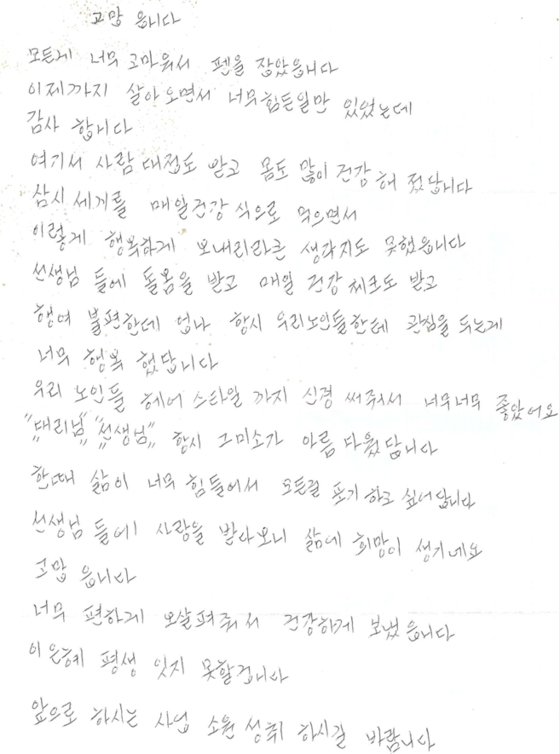 고맙 읍니다
모든게 너무 고마워서 펜을 잡았읍니다
이제까지 살아오면서 너무힘든일만 있었는데
감사 합니다
여기서 사람 대접도 받고 몸도 많이 건강 해 졌답니다
삼시 세끼를 매일건강 식으로 먹으면서
이렇게 행복하게 보내리라곤 생각지도 못했읍니다
선생님 들에 돌봄을 받고 매일 건강 체크도 받고
행여 불편한데 업나 항시 우리노인들한테 관심을 두는게
너무 행복 했답니다
우리 노인들 헤어 스타일 까지 신경 써주셔서 너무너무 좋았어요
"대리님" "선생님" 항시 그미소가 아름 다웠답니다
한때 삶이 너무 힘들어서 모든걸 포기 하고 싶어답니다
선생님 들에 사랑을 받다보니 삶에 희망이 생기네요
고맙 읍니다
너무 편하게 보살펴줘서 건강하게 보냈읍니다
이 은혜 평생 잊지 못할겁니다
앞으로 하시는 사업 소원 성취 하시길 바람니다